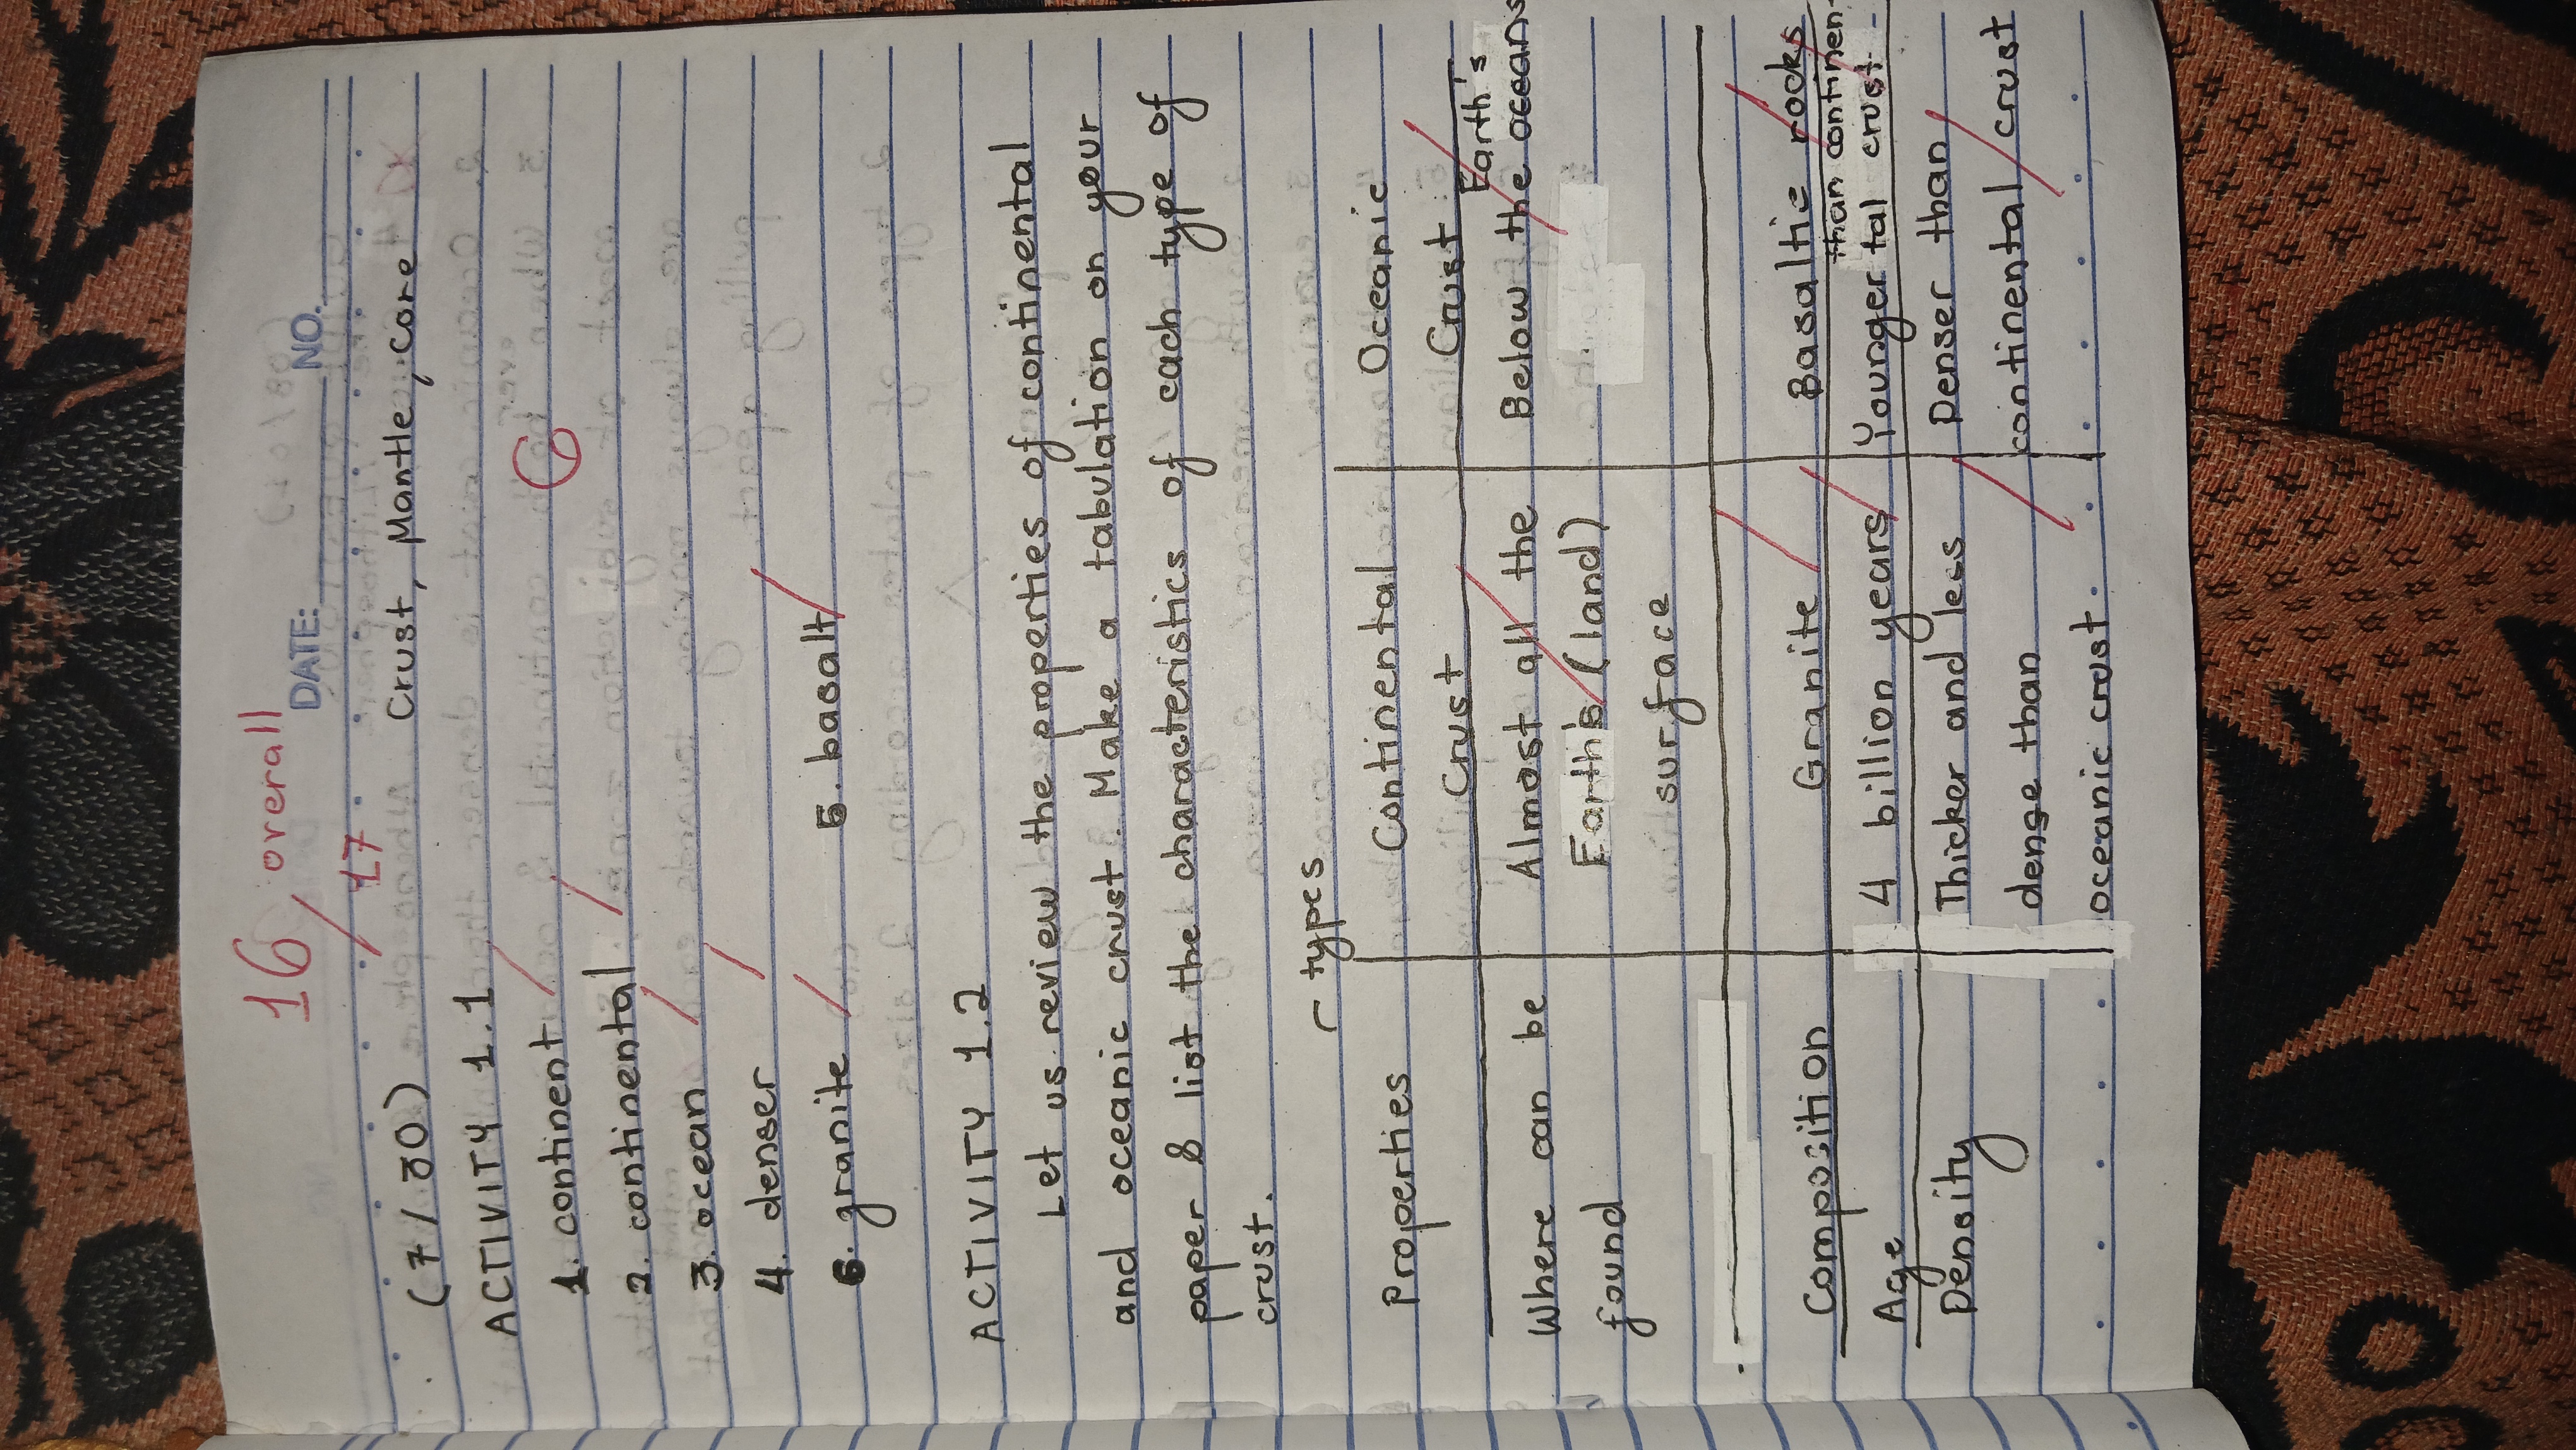 16 overall
DATE: NO.
17
(7/30) Crust, Mantle, Core
ACTIVITY 1.1
1. continent
6
2. continental
3. ocean
4. denser
6. granite 5. basalt
ACTIVITY 1.2
Let us review the properties of continental
and oceanic crust. Make a tabulation on your
paper & list the characteristics of each type of
crust.
types
Properties Continental Crust Oceanic Crust
Where can be found
Almost all the Earth's (land) surface
Below the Earth's oceans
Composition Granite Basaltic rocks
Age 4 billion years Younger than continental crust
Density
Thicker and less
dense than
oceanic crust.
Denser than
continental crust